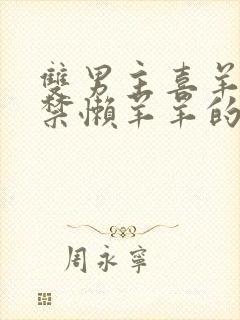 雙男主喜羊
禁懶羊羊的
周永寧